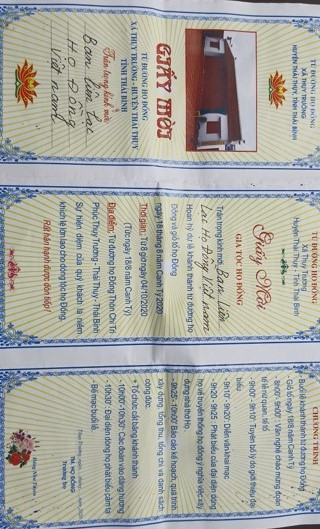 TỪ ĐƯỜNG HỌ ĐỒNG
XÃ THỤY TRƯỜNG - HUYỆN THÁI THỤY
TỈNH THÁI BÌNH
GIẤY MỜI
Trân trọng kính mời
Ban liên lạc
Họ Đồng
Việt nam
TỪ ĐƯỜNG HỌ ĐỒNG
XÃ THỤY TRƯỜNG
HUYỆN THÁI THỤY, TỈNH THÁI BÌNH
TỪ ĐƯỜNG HỌ ĐỒNG
Xã Thụy Trường
Huyện Thái Thụy - Tỉnh Thái Bình
Giấy Mời
GIA TỘC HỌ ĐỒNG
Trân trọng kính mời Ban liên
Lạc Họ Đồng Việt nam
Hoan hỷ dự lễ khánh thành từ đường họ
Đồng và giỗ tổ họ Đồng
ngày 18 tháng 8 năm Canh Tý 2020
Thời gian: Từ 8 giờ ngày 04/10/2020
(Tức ngày 18/8 năm Canh Tý)
Địa điểm: Từ đường họ Đồng Thôn Chỉ Tn
Phúc Thụy Trường - Thái Thụy - Thái Bình
Sự hiện diện của quý khách là niềm
khích lệ lớn lao cho dòng tộc họ Đồng.
Rất hân hạnh được đón tiếp!
CHƯƠNG TRÌNH
- Buổi lễ khánh thành từ đường họ Đồng
- Giỗ tổ ngày 18/8 năm Canh Tý
- 8h00'- 9h00' Văn nghệ chào mừng đoàn
tế lễ nữ quan, tế tổ
- 9h00' - 9h10' Tuyên bố lý do giới thiệu đại
biểu
- 9h10' - 9h20' Diễn văn khai mạc
- 9h20 - 9h25 Phát biểu của đại diện dòng
họ về truyền thống họ đồng ý nghĩa việc xây
dựng nhà thờ Họ
- 9h25' - 10h00' Báo cáo kế hoạch, quá trình
xây dựng, tổng thu, tổng chi và danh sách
công đức.
+ Tổ chức cắt băng khánh thành
- 10h00'-10h30' Các đoàn vào dâng hương
- 10h30' - Đại diện dòng họ phát biểu cảm tạ
- Bế mạc buổi lễ.
TM. HỌ ĐỒNG
Trưởng họ